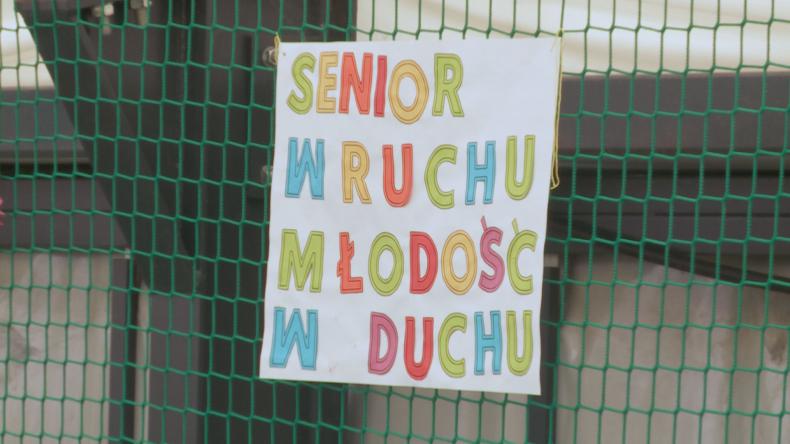 SENIOR
W RUCHU
MŁODOŚĆ
W DUCHU